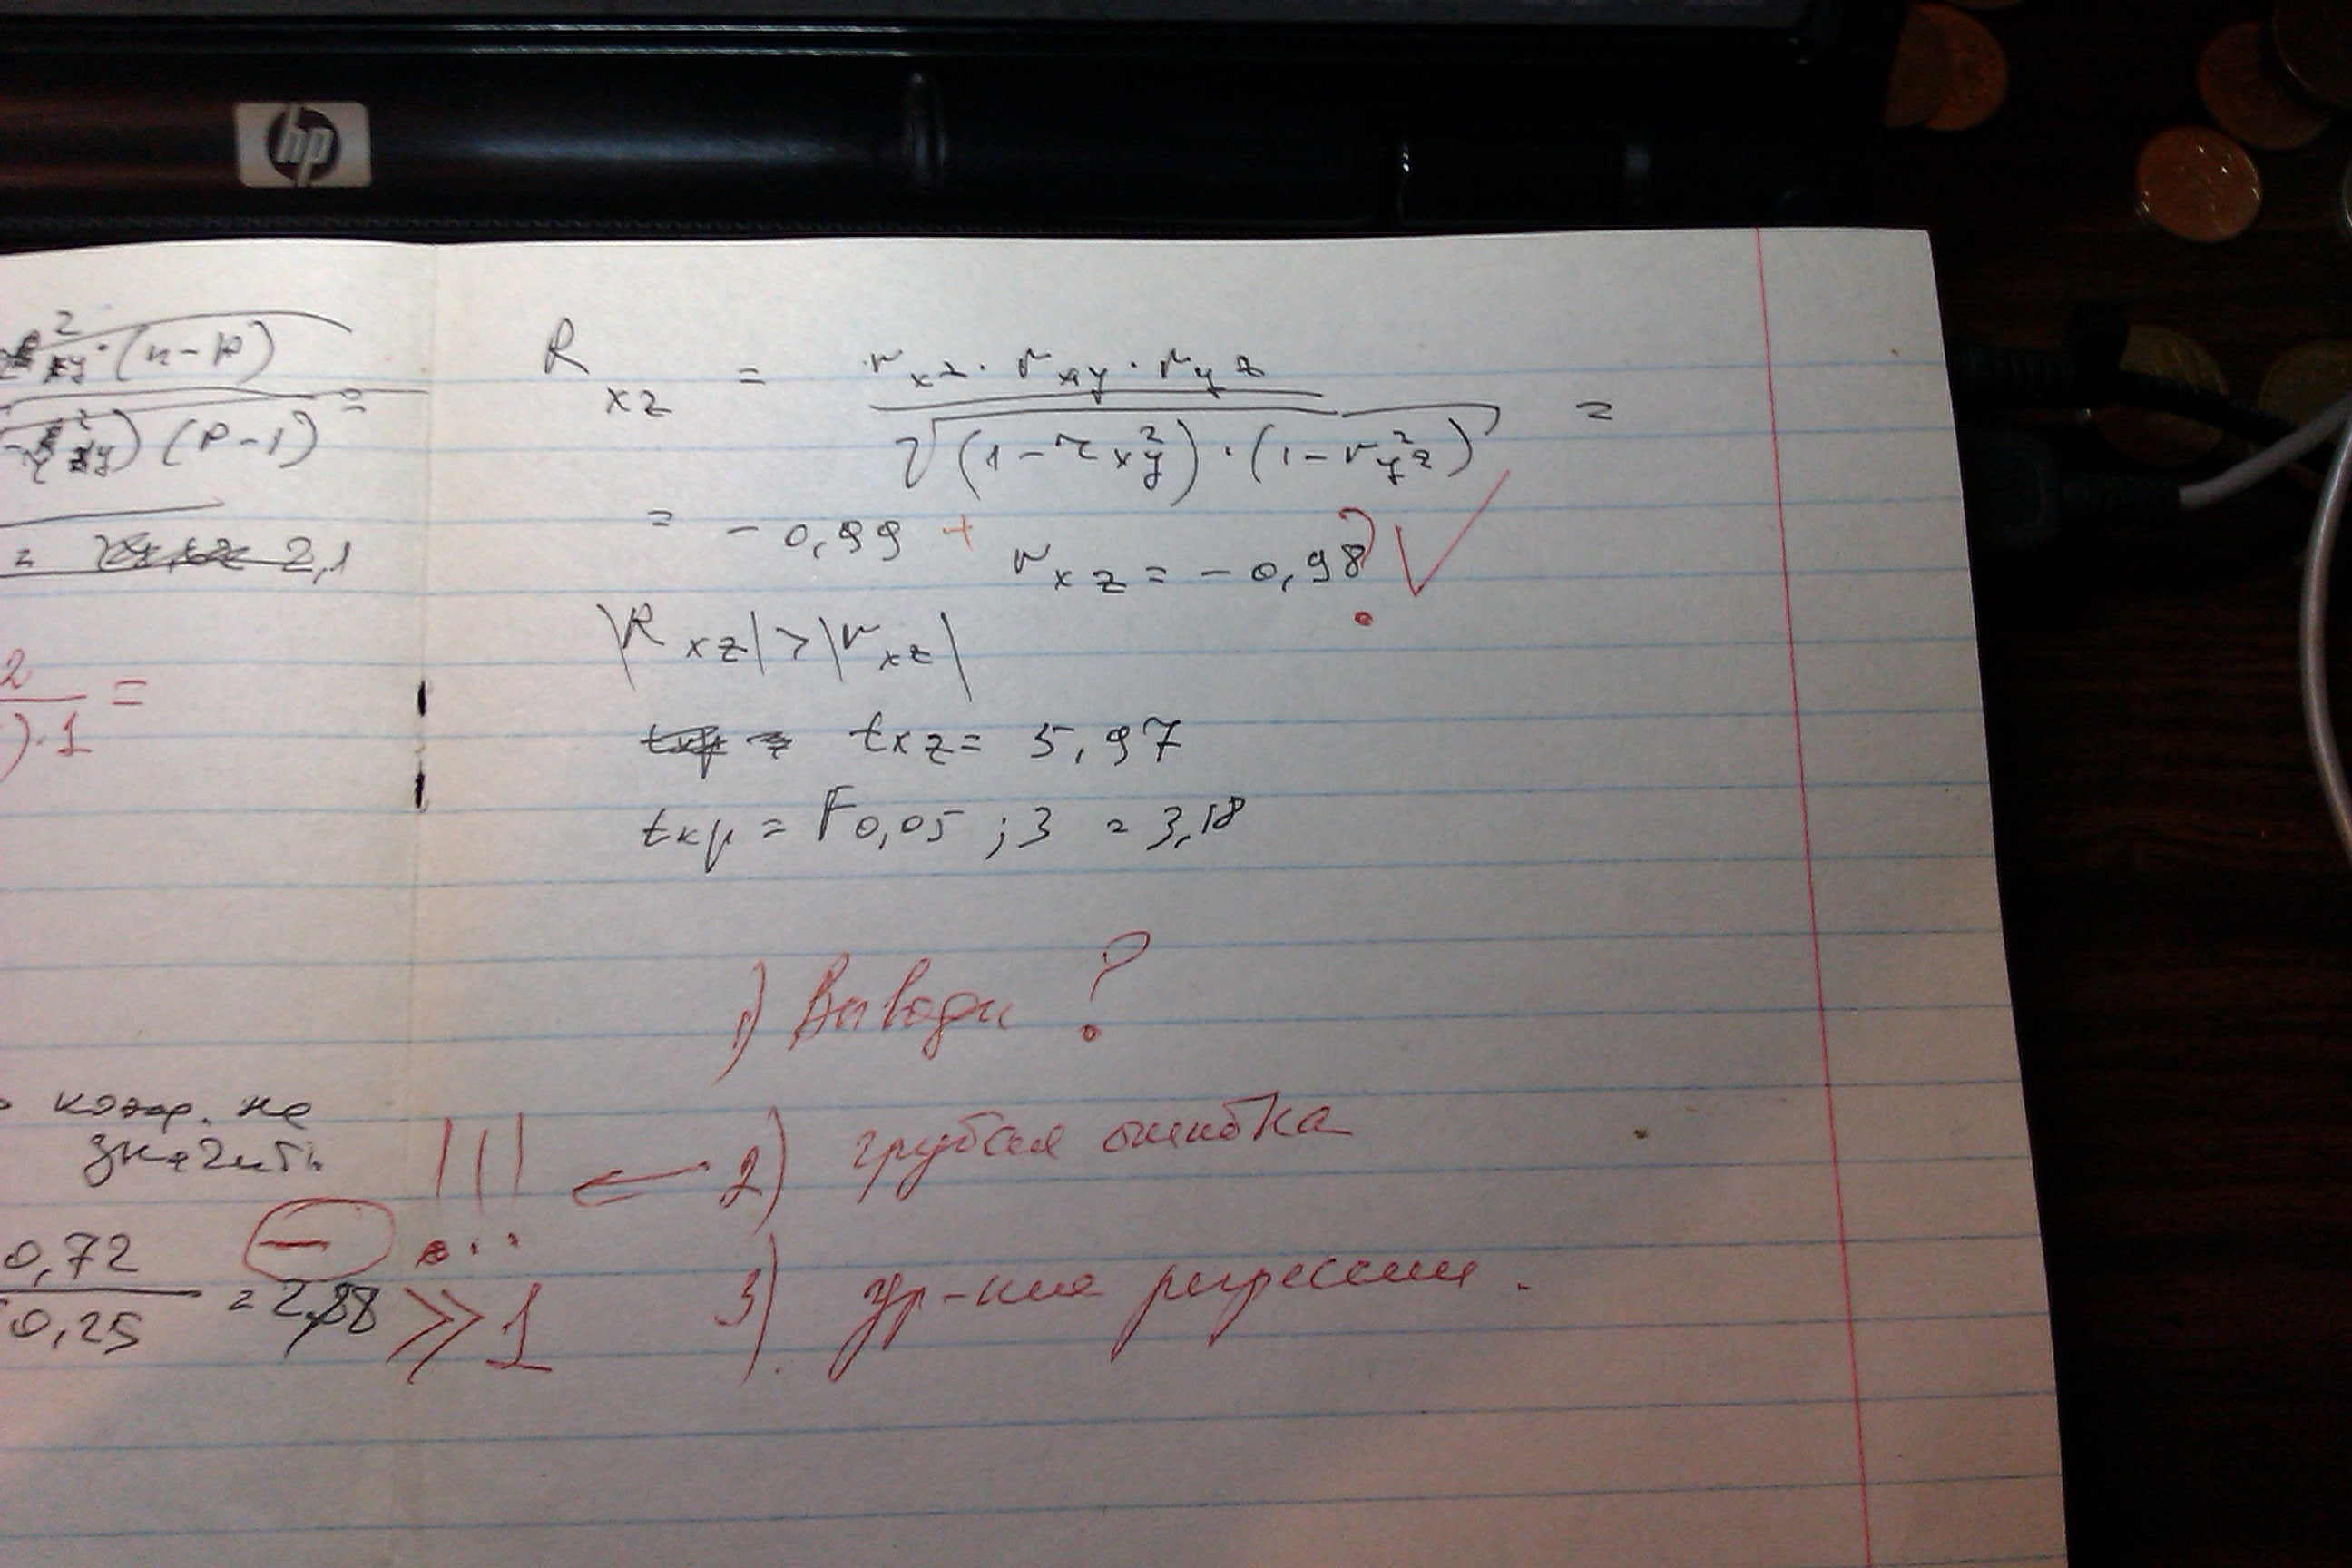 hp
(n-p)
(p-1) =
= 2,1
2
).1 =
не
значить
0,72
0,25
= 2,88 >> 1
!!!
R xz = r xz · r xy · r yz / √(1 - r²xy) · (1 - r²yz) =
= -0,99 + r xz = -0,98 ?
|R xz| > |r xz|
t xz = 5,97
t кр = F 0,05 ; 3 = 3,18
1) Выводы ?
2) грубая ошибка
3) ур-ние регрессии.